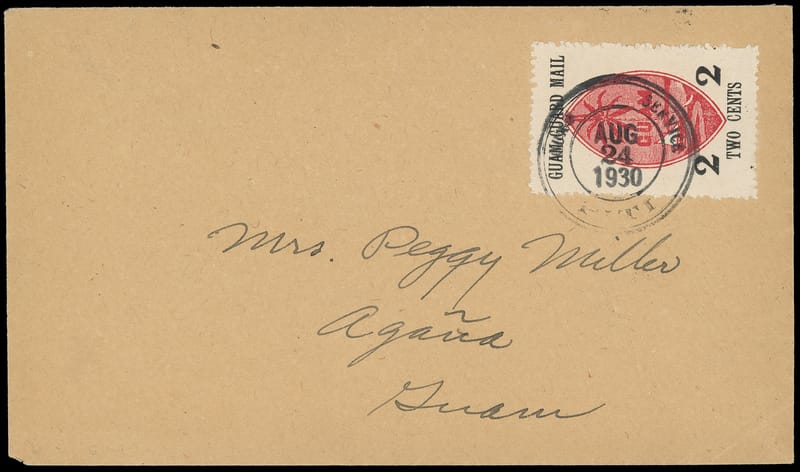 GUAM GUARD MAIL
2 2
TWO CENTS
SERVICE
AUG
24
1930
Mrs. Peggy Miller
Agaña
Guam